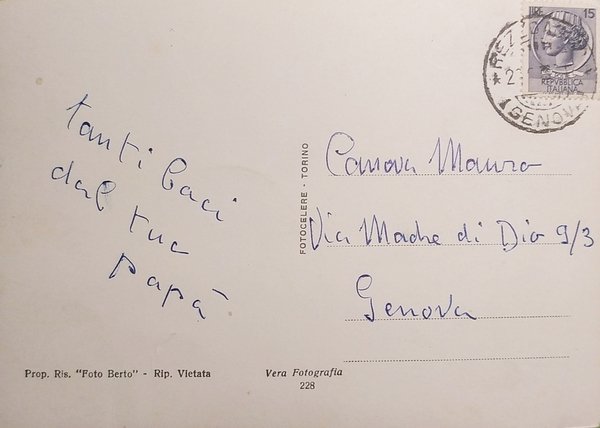 LIRE 15
REPVBBLICA
ITALIANA
GENOVA
tanti baci
dal tuo
papà
FOTOCELERE - TORINO
Canova Mauro
Via Madre di Dio 9/3
Genova
Prop. Ris. "Foto Berto" - Rip. Vietata
Vera Fotografia
228